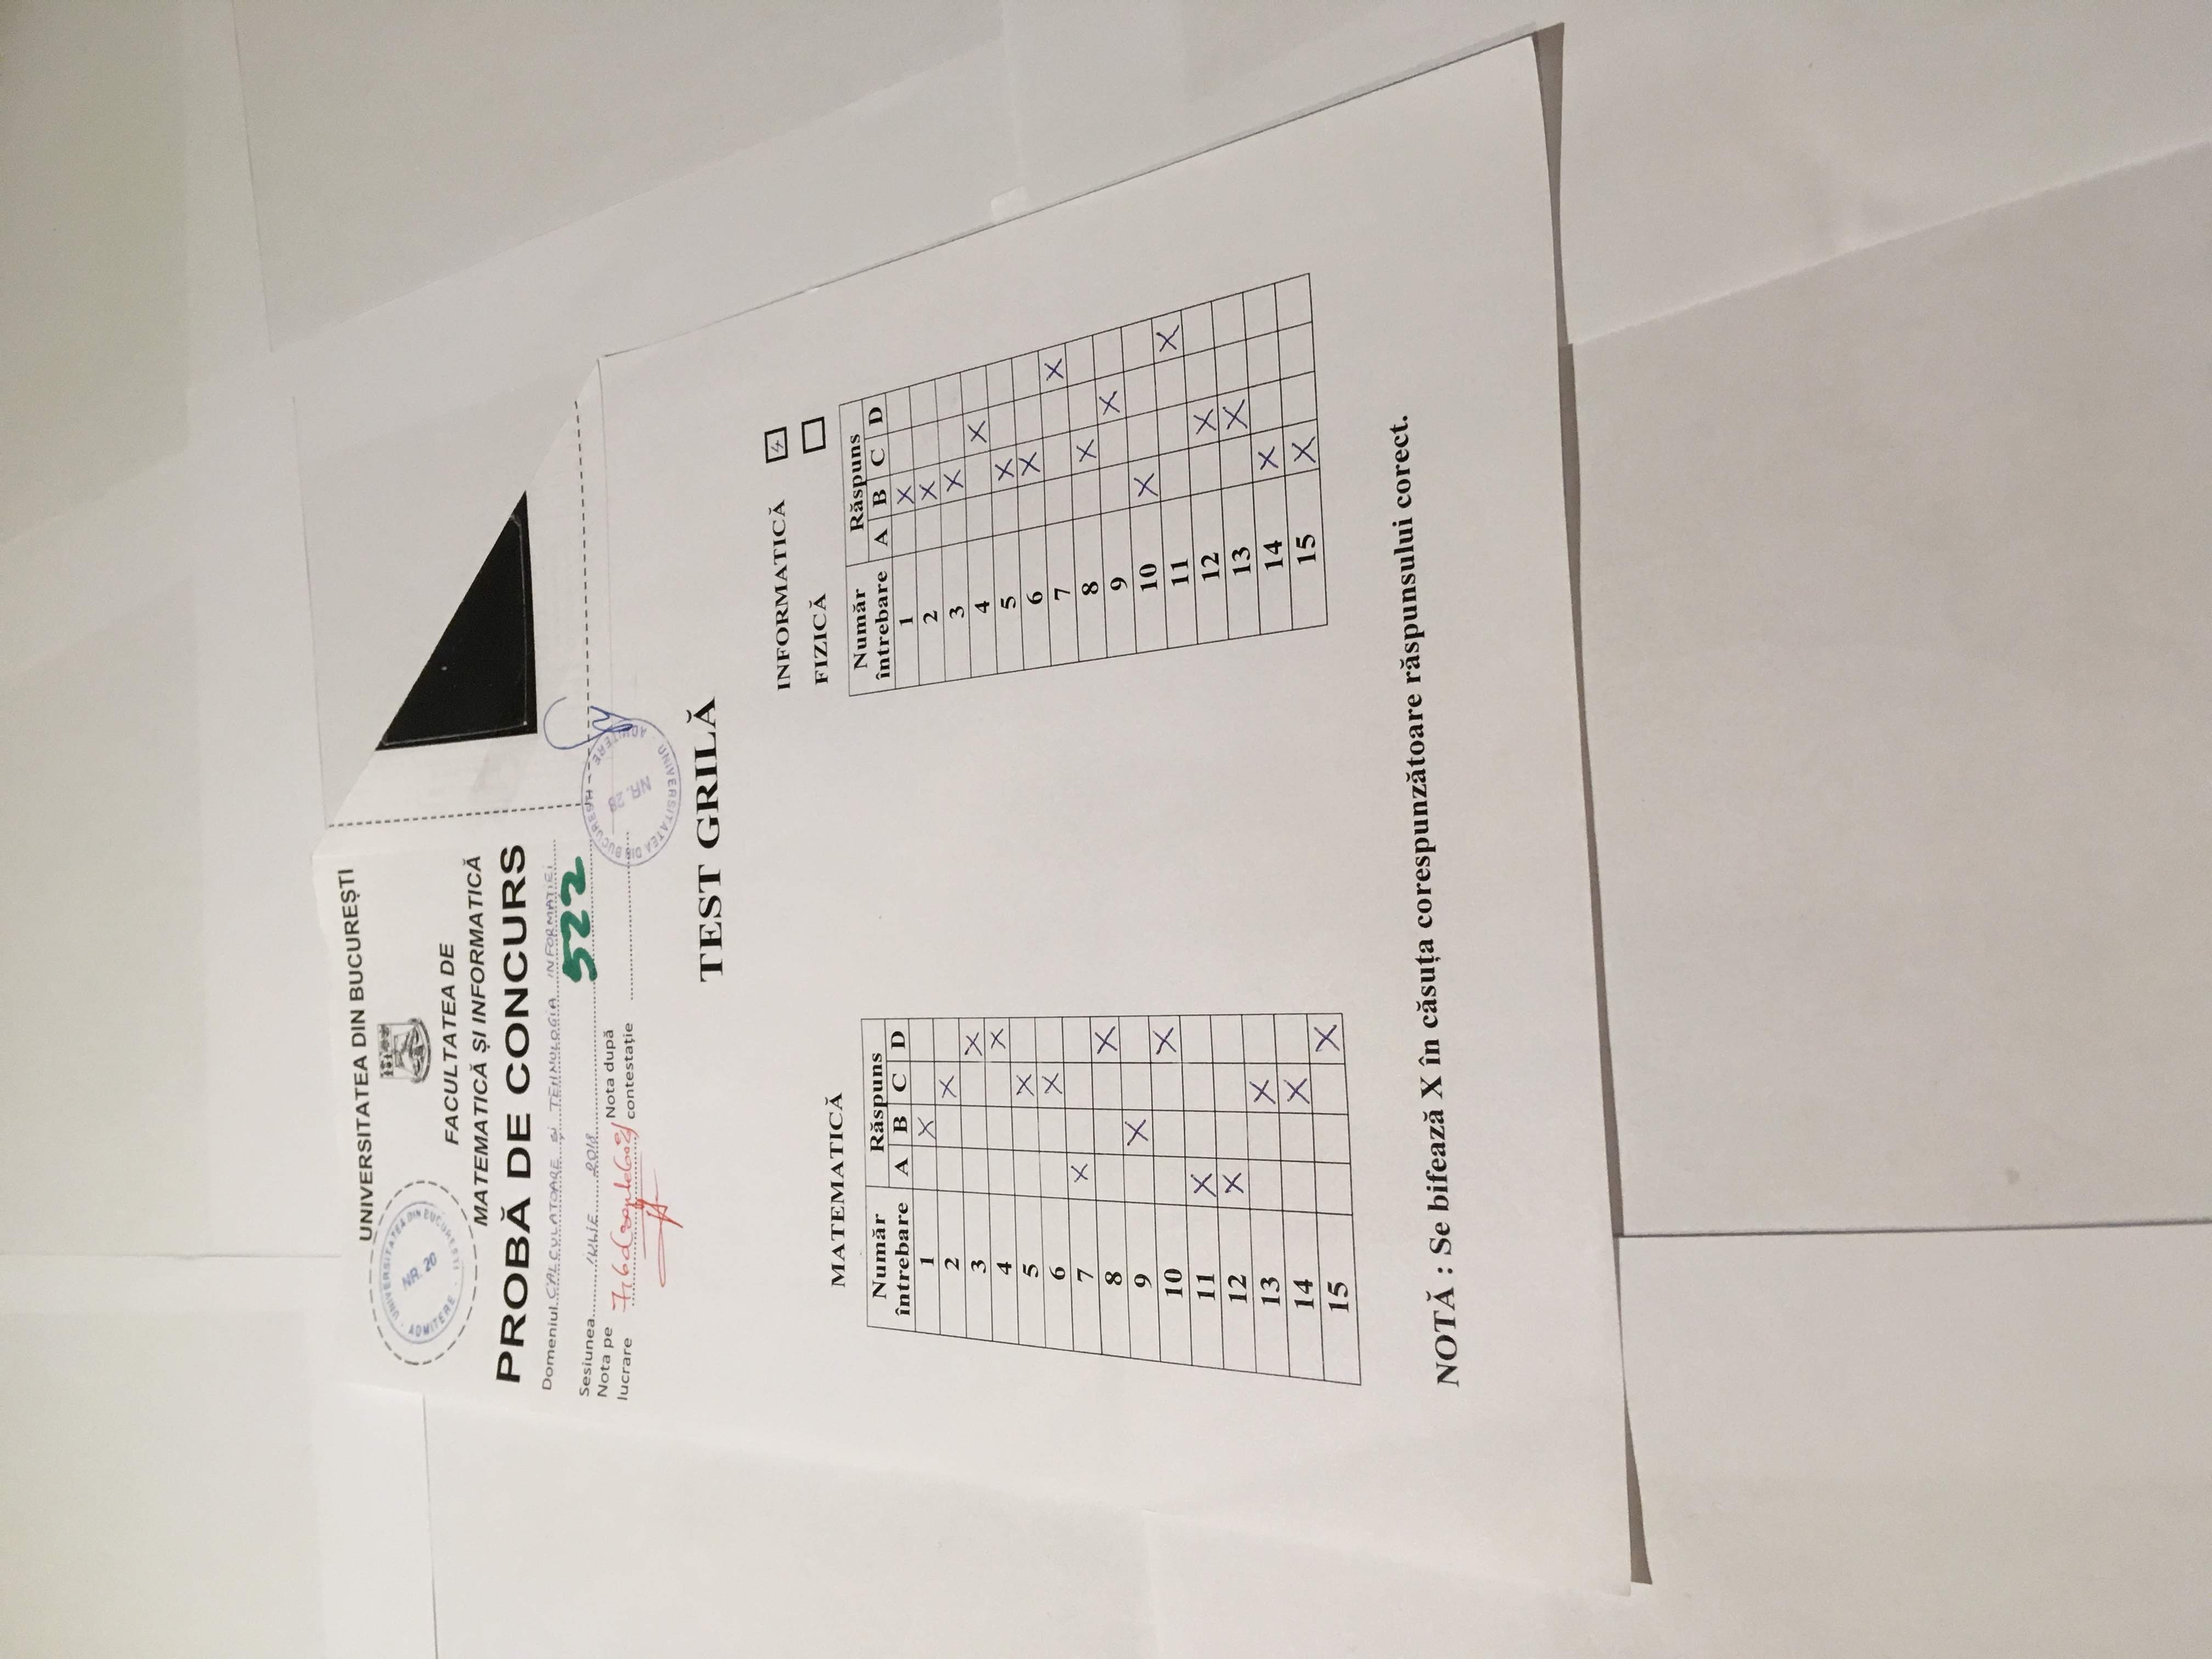 UNIVERSITATEA DIN BUCUREȘTI
UNIVERSITATEA DIN BUCUREȘTI · ADMITERE ·
NR. 20
FACULTATEA DE
MATEMATICĂ ȘI INFORMATICĂ
PROBĂ DE CONCURS
Domeniul CALCULATOARE și TEHNOLOGIA INFORMAȚIEI
522
Sesiunea IULIE 2018
Nota pe lucrare 7,60 (șapte 60%)
Nota după contestație
UNIVERSITATEA DIN BUCUREȘTI - ADMITERE
NR. 28
TEST GRILĂ
MATEMATICĂ
Număr întrebare Răspuns
A B C D
1 X
2 X
3 X
4 X
5 X
6 X
7 X
8 X
9 X
10 X
11 X
12 X
13 X
14 X
15 X
INFORMATICĂ
FIZICĂ
Număr întrebare Răspuns
A B C D
1 X
2 X
3 X
4 X
5 X
6 X
7 X
8 X
9 X
10 X
11 X
12 X
13 X
14 X
15 X
NOTĂ : Se bifează X în căsuța corespunzătoare răspunsului corect.